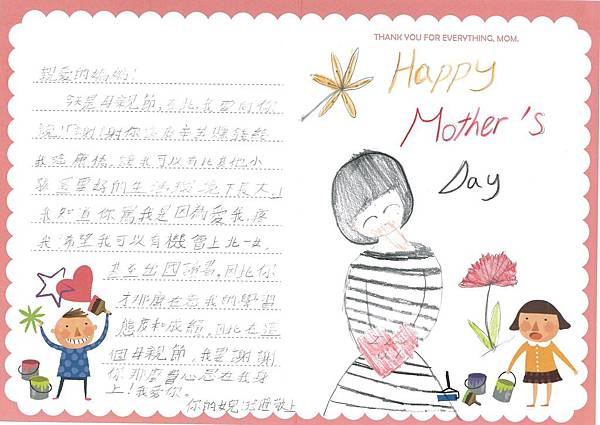 親愛的媽媽：
今天是母親節，在此，我要向你
說：「謝謝你 辛苦賺錢給
我 讓我可以 比其他小
孩 更好的生活環境下長大。」
我知道你罵我是因為愛我、疼
我，希望我可以有機會上北一女，
甚至出國讀書。因此你
才那麼在意我的學習
態度和成績。因此在這
個母親節，我要謝謝
你那麼費心思在我身
上！我愛你。
你的女兒： 敬上
THANK YOU FOR EVERYTHING, MOM.
Happy
Mother's
Day